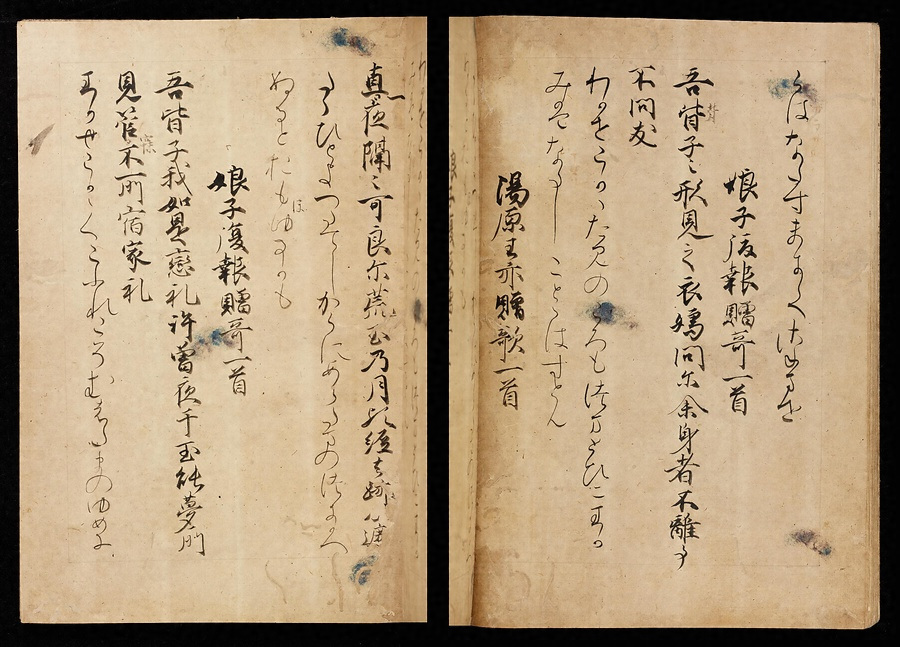 らはなたすまきてさねませ
娘子復報贈哥一首
吾背子之形見之衣嬬問尓余身者不離事
不問友
わかせこかかたみのころもつまとひにわか
みはなたしことゝはすとん
湯原王亦贈歌一首
直一夜隔之可良尓荒玉乃月歟經去跡心遮
たゝひとよへたてしからにあらたまのつきかへ
ぬるとおもほゆるかも
娘子復報贈哥一首
吾背子我如是戀礼許曽夜干玉能夢所
見管不所宿家礼
わかせこかかくこふれこそむはたまのゆめに